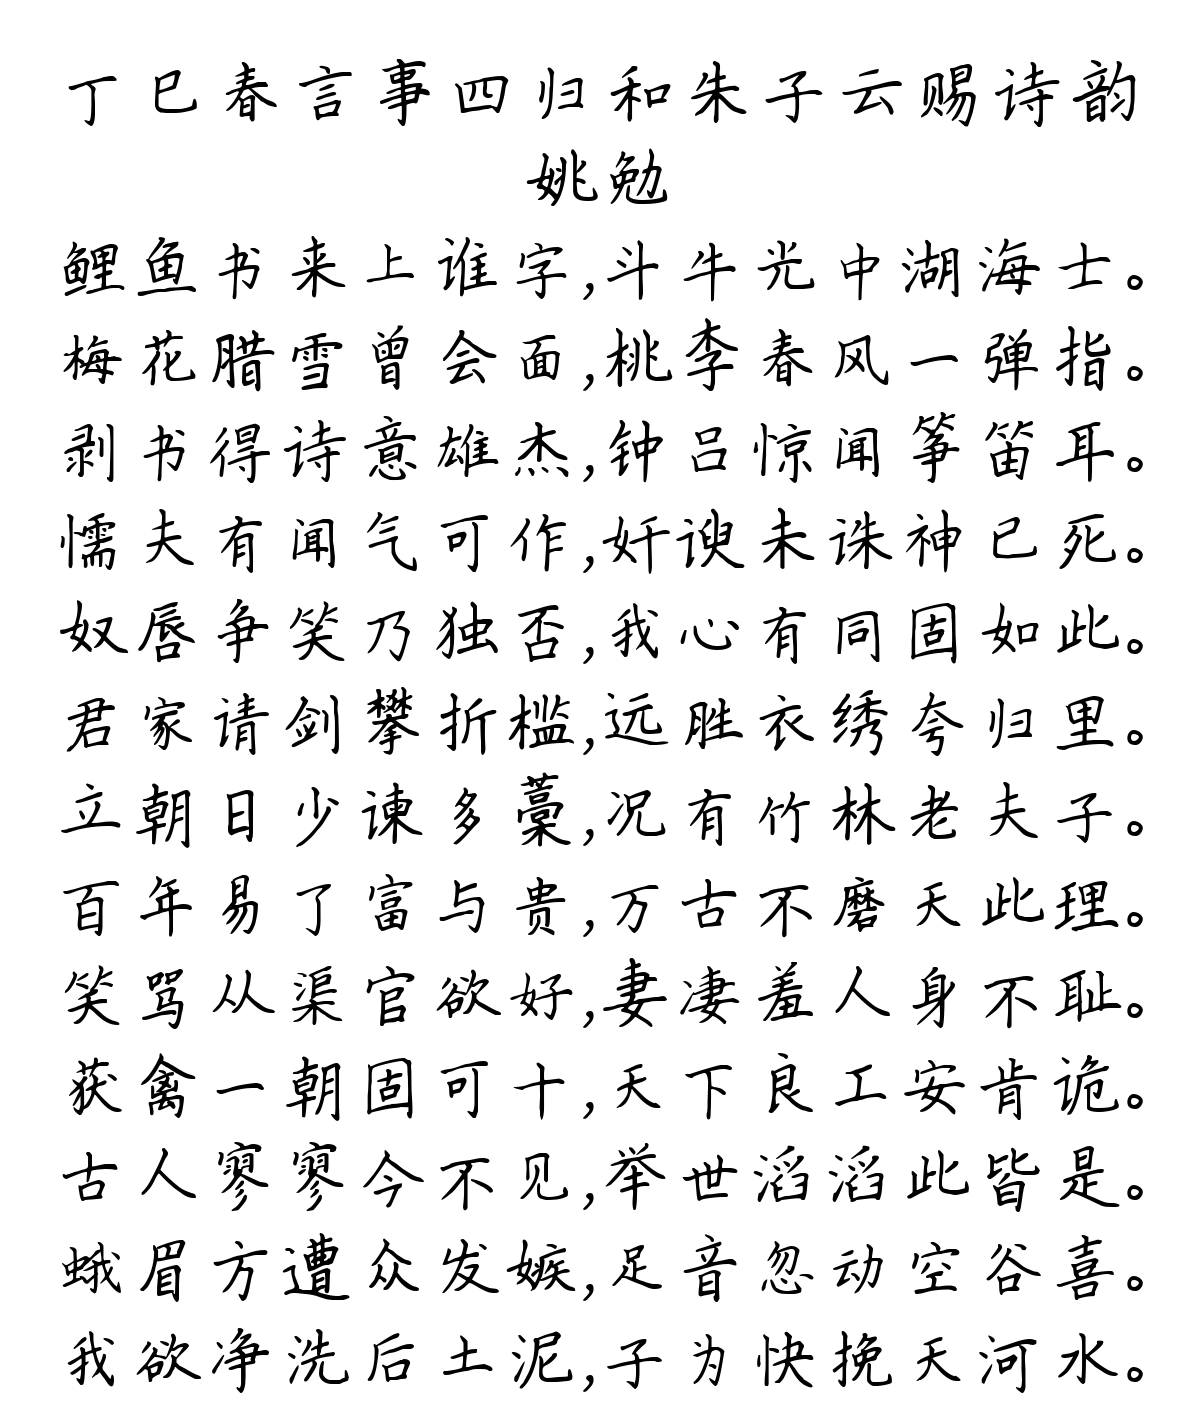 丁巳春言事四归和朱子云赐诗韵
姚勉
鲤鱼书来上谁字,斗牛光中湖海士。
梅花腊雪曾会面,桃李春风一弹指。
剥书得诗意雄杰,钟吕惊闻筝笛耳。
懦夫有闻气可作,奸谀未诛神已死。
奴唇争笑乃独否,我心有同固如此。
君家请剑攀折槛,远胜衣绣夸归里。
立朝日少谏多藁,况有竹林老夫子。
百年易了富与贵,万古不磨天此理。
笑骂从渠官欲好,妻凄羞人身不耻。
获禽一朝固可十,天下良工安肯诡。
古人寥寥今不见,举世滔滔此皆是。
蛾眉方遭众发嫉,足音忽动空谷喜。
我欲净洗后土泥,子为快挽天河水。